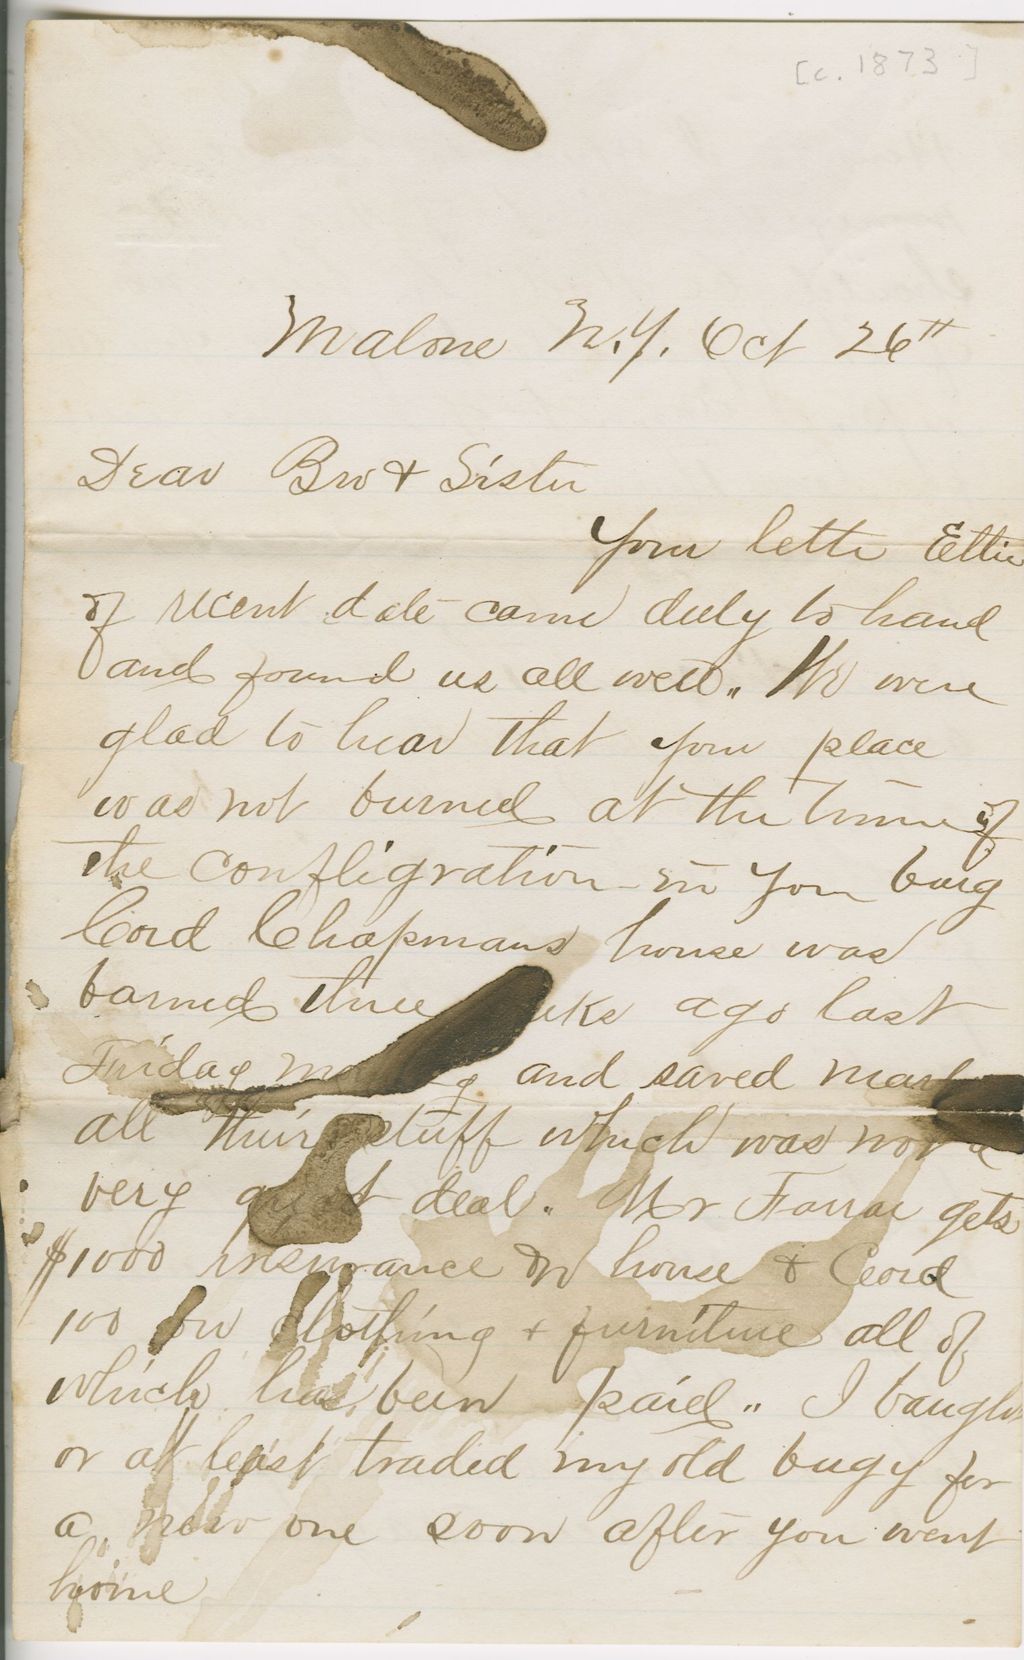 [c. 1873 ]
Malone N.Y. Oct 26"
Dear Bro & Sister
Your letter Ettie
of recent date came duly to hand
and found us all well,, We were
glad to hear that your place
was not burned at the time of
the confligration in your burg
Cord Chapmans house was
burned three ago last
Friday and saved
all their stuff which was not a
very great deal. Mr Farrar gets
$1000 insurance on house & Cord
100 on clothing & furniture all of
which has been paid,, I baught
or at least traded my old bugy for
a new one soon after you went
home